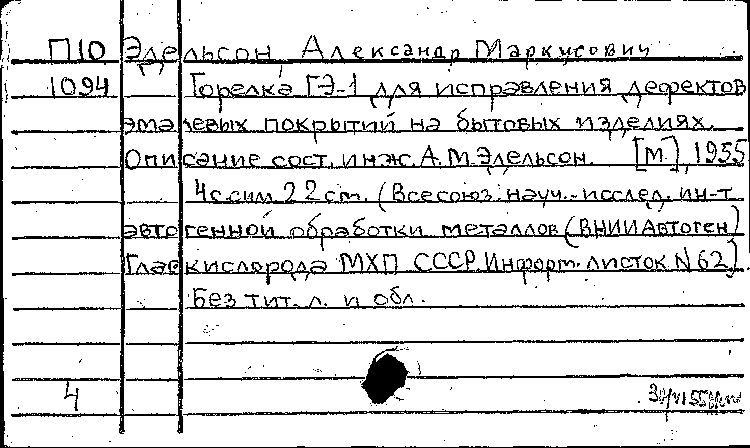 П10 Эдельсон, Александр Маркусович
1094 Горелка ГЭ-1 для исправления дефектов
эмалевых покрытий на бытовых изделиях.
Описание сост. инж. А.М. Эдельсон. [М], 1955
4 с с илл. 22 см. (Всесоюз. науч.-исслед. ин-т
автогенной обработки металлов (ВНИИАвтоген)
Главкислорода МХП СССР. Информ. листок N 62)
Без тит. л. и обл.
4